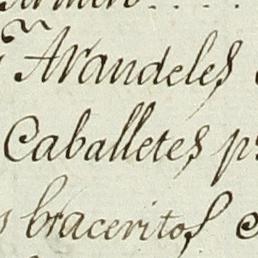 Arandeles
Caballetes p
braceritos